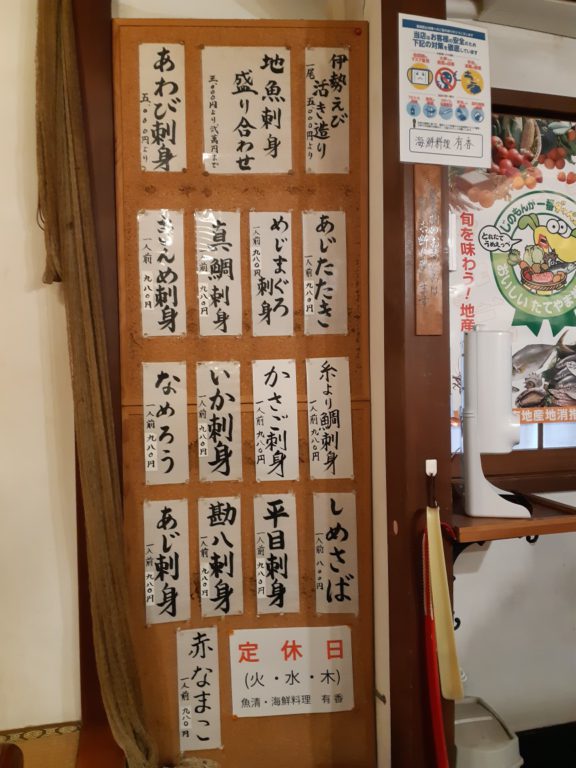 伊勢えび
活き造り
一尾 五、〇〇〇円より
地魚刺身
盛り合わせ
三、〇〇〇円より弐萬円まで
あわび刺身
五、〇〇〇円より
あじたたき
一人前 九八〇円
めじまぐろ刺身
一人前 九八〇円
真鯛刺身
一人前 九八〇円
きんめ刺身
一人前 九八〇円
糸より鯛刺身
一人前 九八〇円
かさご刺身
一人前 九八〇円
いか刺身
一人前 九八〇円
なめろう
一人前 九八〇円
しめさば
一人前 八〇〇円
平目刺身
一人前 九八〇円
勘八刺身
一人前 九八〇円
あじ刺身
一人前 九八〇円
赤なまこ
一人前 九八〇円
定休日
(火・水・木)
魚清・海鮮料理 有香
当店はお客様の安全のため
下記の対策を徹底しています
海鮮料理 有香
じのもんが一番
とれたて
うめえっぺ
おいしいたてやま
旬を味わう!地産
地産地消推